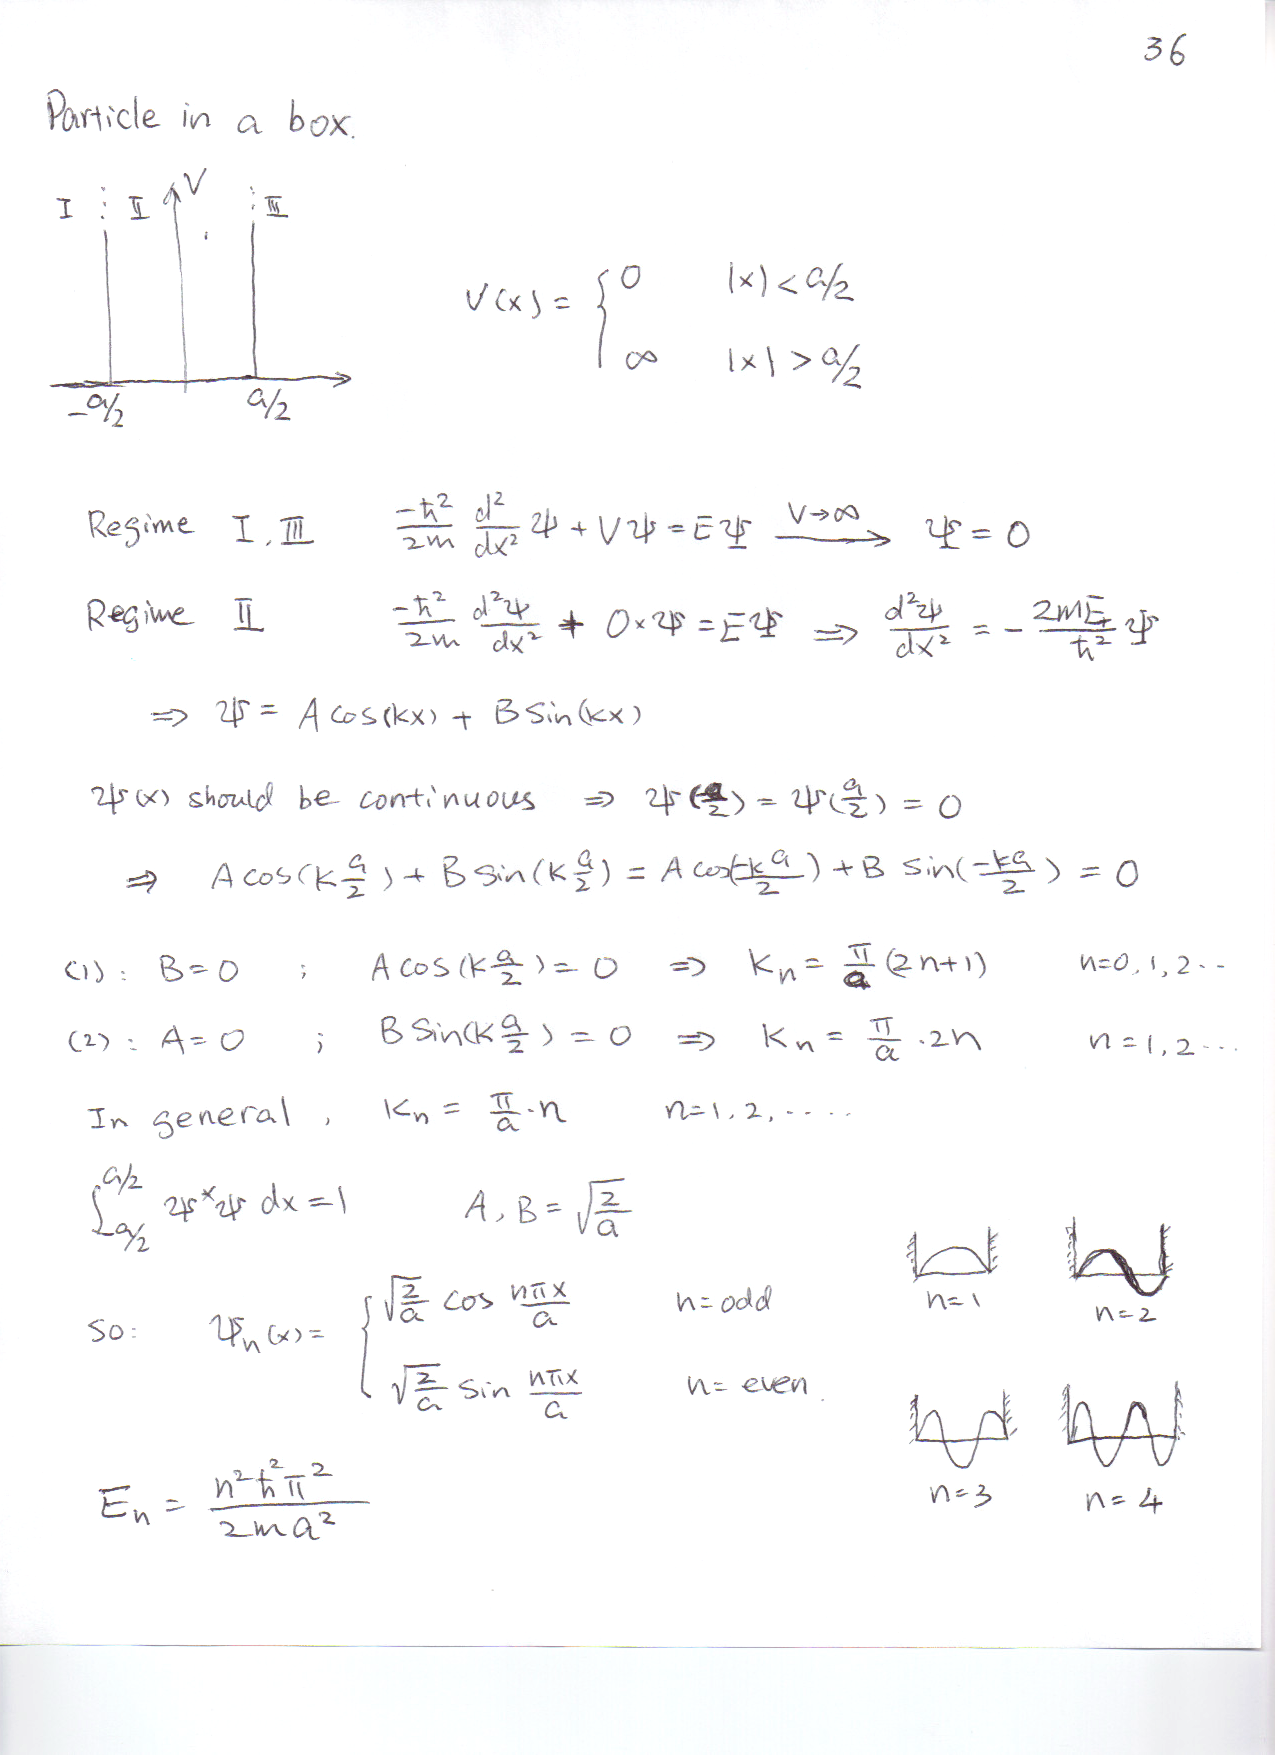 36
Particle in a box.
I II V III
-a/2 a/2
V(x) = { 0 |x| < a/2
∞ |x| > a/2
Regime I, III -ħ²/2m d²/dx² Ψ + VΨ = EΨ V→∞ ⟶ Ψ = 0
Regime II -ħ²/2m d²Ψ/dx² + 0×Ψ = EΨ ⇒ d²Ψ/dx² = - 2mE/ħ² Ψ
⇒ Ψ = A cos(kx) + B Sin(kx)
Ψ(x) should be continuous ⇒ Ψ( /2) = Ψ(a/2) = 0
⇒ A cos(k a/2) + B Sin(k a/2) = A cos(-k a/2) + B sin(-ka/2) = 0
(1): B=0 ; A cos(k a/2) = 0 ⇒ Kn = π/a (2n+1) n=0,1,2--
(2): A=0 ; B Sin(k a/2) = 0 ⇒ Kn = π/a ·2n n=1,2---
In general, Kn = π/a·n n=1,2,-----
∫_{-a/2}^{a/2} Ψ*Ψ dx = 1 A, B = √(2/a)
So: Ψn(x) = { √(2/a) cos nπx/a n=odd
√(2/a) sin nπx/a n= even
n=1 n=2
n=3 n=4
En = n²ħ²π²/2ma²